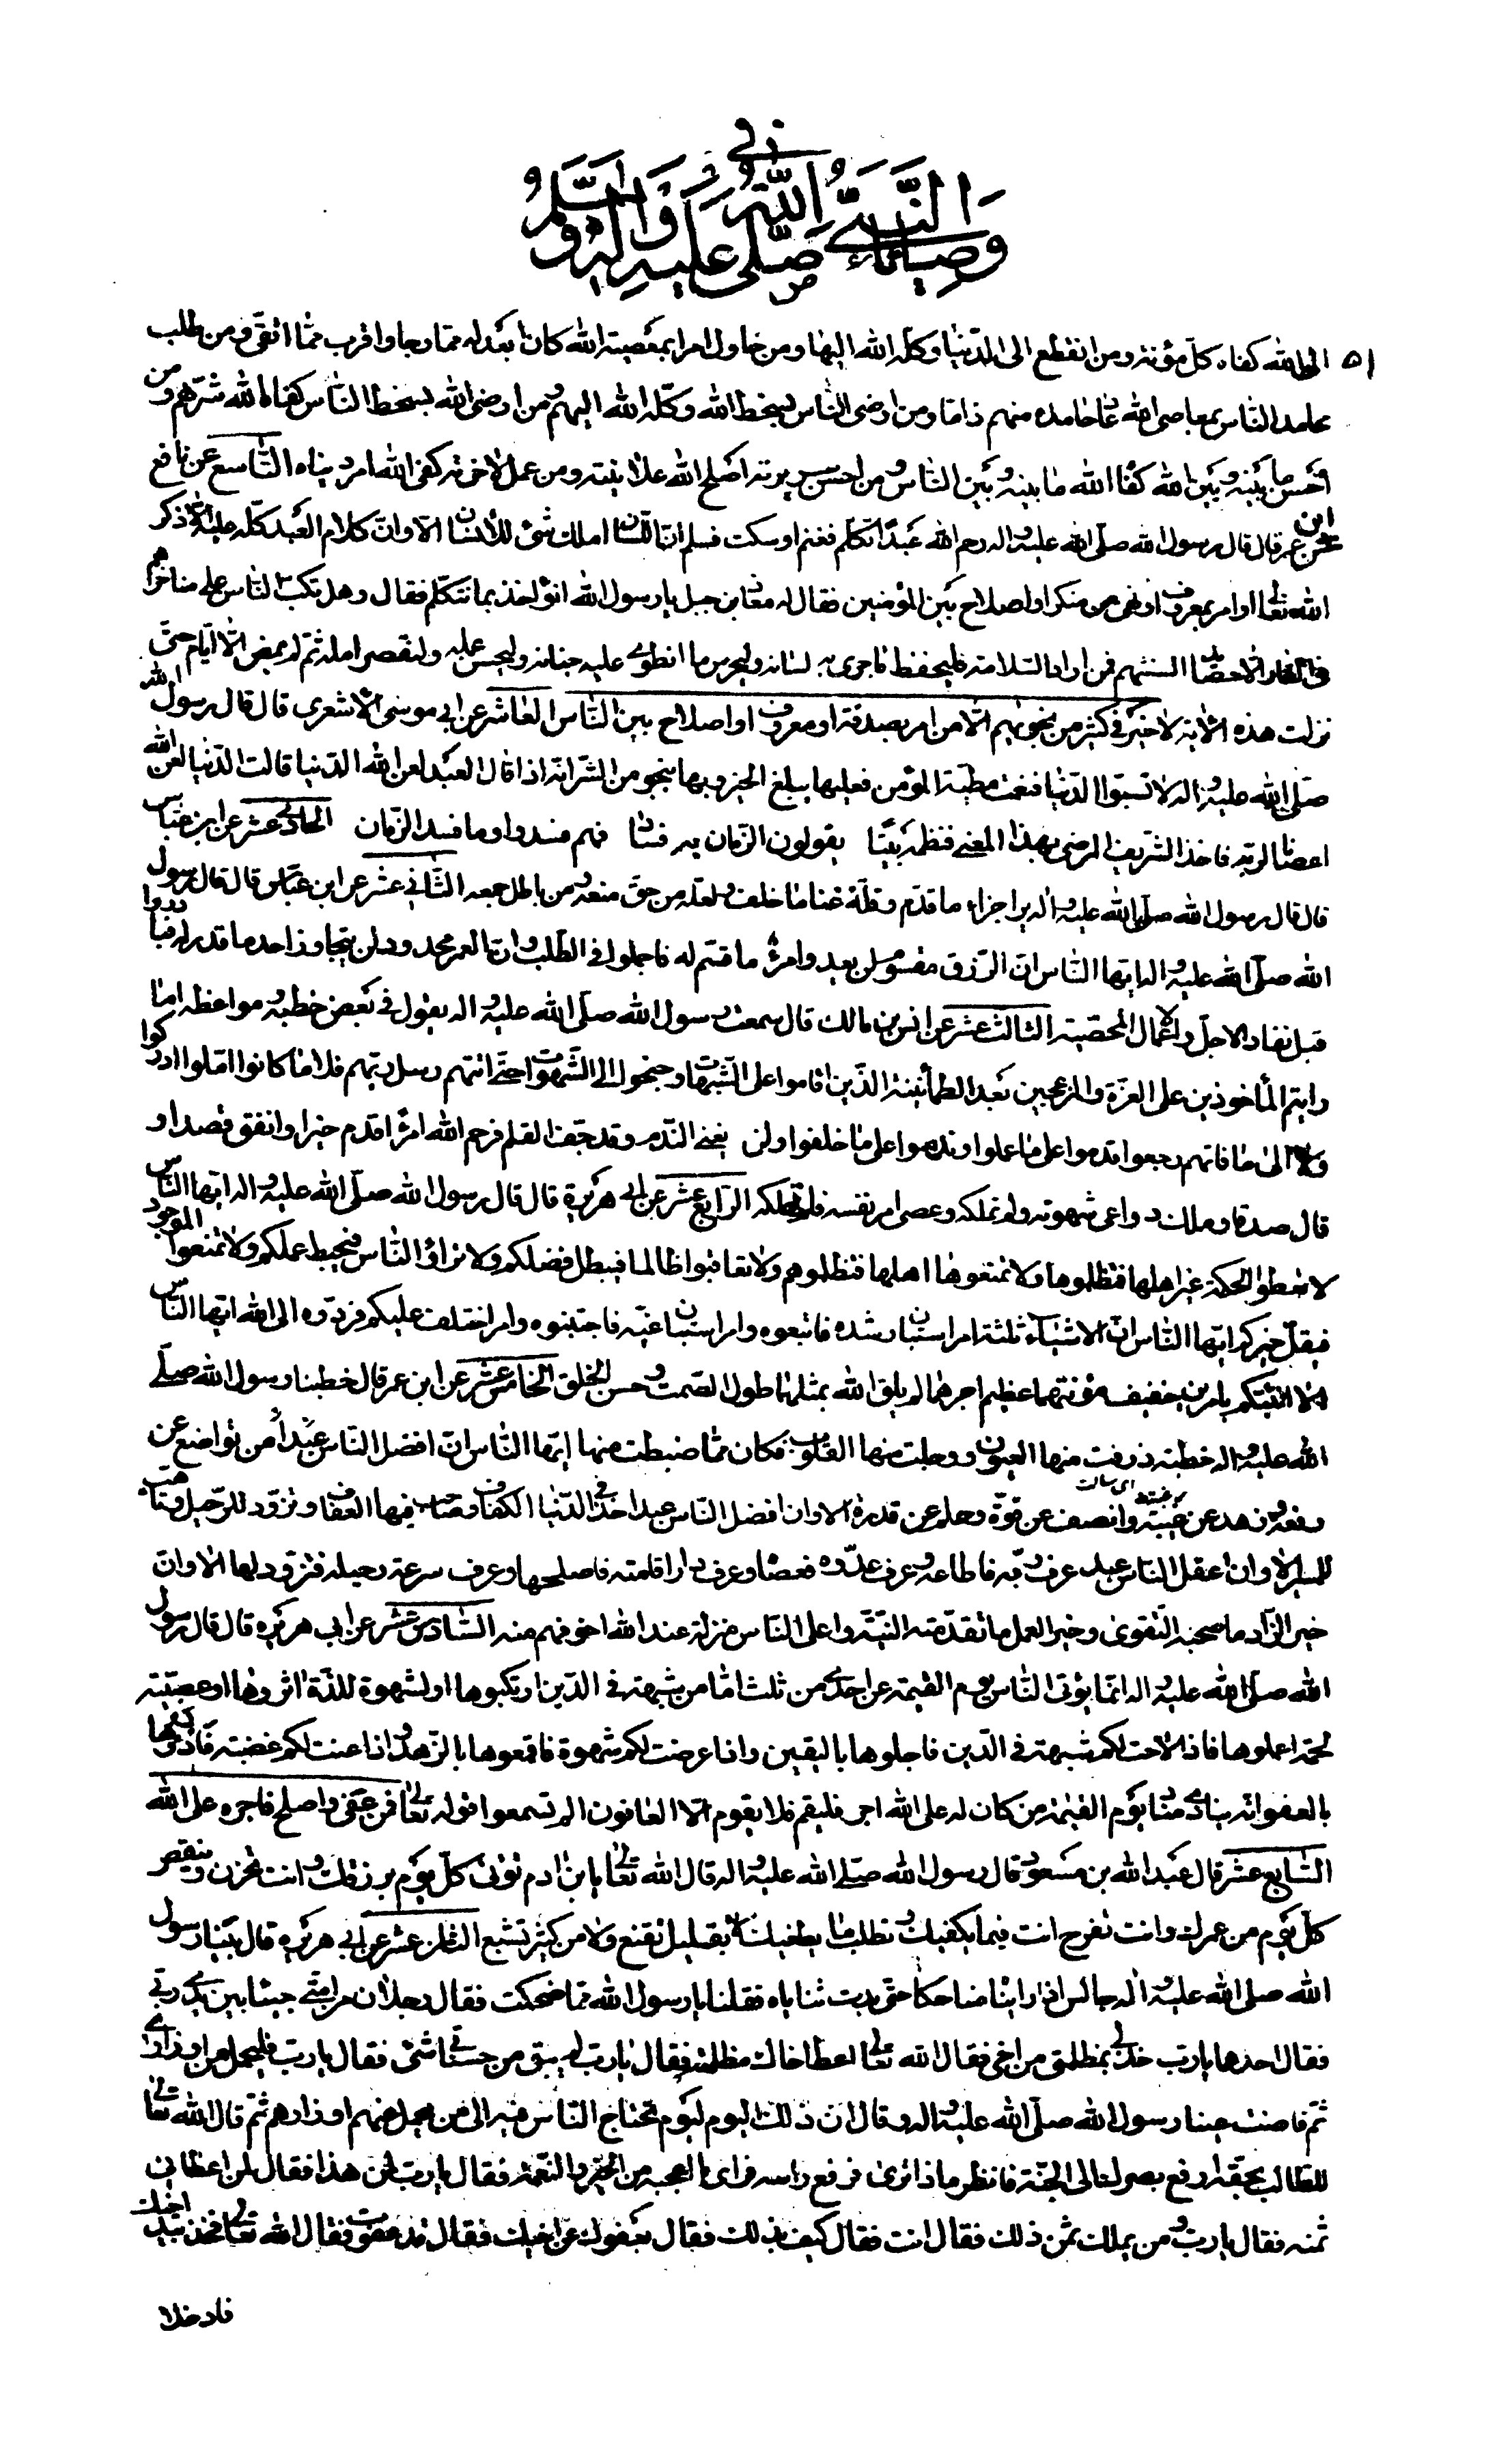 في وصايا النبي صلى الله عليه وآله وسلم
٥١ الى الله كفاه كل مؤنة ومن انقطع الى الدنيا وكله الله اليها ومن حاول امرا بمعصية الله كان ابعد له مما رجا واقرب مما اتقى ومن طلب
محامد الناس بمعاصى الله عاد حامده منهم ذاما ومن ارضى الناس بسخط الله وكله الله اليهم ومن ارضى الله بسخط الناس كفاه الله شرهم ومن
احسن ما بينه وبين الله كفاه الله ما بينه وبين الناس ومن احسن سريرته اصلح الله علانيته ومن عمل لاخرته كفى الله امر دنياه التاسع عن نافع
عن ابن عمر قال قال رسول الله صلى الله عليه واله رحم الله عبدا تكلم فغنم او سكت فسلم ان اللسان املك شئ للانسان الا وان كلام العبد كله عليه الا ذكر
الله تعالى او امر بمعروف او نهى عن منكر او اصلاح بين المؤمنين فقال له معاذ بن جبل يا رسول الله انؤاخذ بما نتكلم فقال وهل تكب الناس على مناخرهم
فى النار الا حصائد السنتهم فمن اراد السلامة فليحفظ ما جرى به لسانه وليحرس ما انطوى عليه جنانه وليحسن عمله وليقصر امله ثم لم يمض الا ايام حتى
نزلت هذه الاية لا خير فى كثير من نجويهم الا من امر بصدقة او معروف او اصلاح بين الناس العاشر عن ابى موسى الاشعرى قال قال رسول الله
صلى الله عليه واله لا تسبوا الدنيا فنعمت مطية المؤمن فعليها يبلغ الخير وبها ينجو من الشر انه اذا قال العبد لعن الله الدنيا قالت الدنيا لعن الله
اعصانا لربه فاخذ الشريف الرضى بهذا المعنى فنظمه بيتا يقولون الزمان به فساد فهم فسدوا وما فسد الزمان الحادى عشر عن ابن عباس
قال قال رسول الله صلى الله عليه واله يرا جزاء ما قدم وقلة غنا ما خلف ولعله من حق منعه ومن باطل جمعه الثانى عشر عن ابن عباس قال قال رسول
الله صلى الله عليه واله ايها الناس ان الرزق مقسوم لن يعدو امرء ما قسم له فاجملوا فى الطلب وان العمر محدود لن يتجاوز احد ما قدر له فبادروا
قبل نفاد الاجل والاعمال المحصية الثالث عشر عن انس بن مالك قال سمعت رسول الله صلى الله عليه واله يقول فى بعض خطبه ومواعظه اما
رايتم المأخوذين على العزة والمزعجين بعد الطمأنينة الذين اقاموا على الشبهات وجنحوا الى الشهوات حتى اتتهم رسل ربهم فلا ما كانوا املوا ادركوا
ولا الى ما فاتهم رجعوا قدموا على ما عملوا وندموا على ما خلفوا ولن يغنى الندم وقد جف القلم فرحم الله امرءا قدم خيرا وانفق قصدا و
قال صدقا وملك دواعى شهوته ولم تملكه وعصى امر نفسه فلم تهلكه الرابع عشر عن ابى هريرة قال قال رسول الله صلى الله عليه واله ايها الناس
لا تعطوا الحكمة غير اهلها فتظلموها ولا تمنعوها اهلها فتظلموهم ولا تعاقبوا ظالما فيبطل فضلكم ولا تراؤا الناس فيحبط عملكم ولا تمنعوا الموجود
فيقل خيركم ايها الناس ان الاشياء ثلثة امر استبان رشده فاتبعوه وامر استبان غيه فاجتنبوه وامر اختلف عليكم فردوه الى الله ايها الناس
الا انبئكم بامرين خفيف مؤنتهما عظيم اجرهما لم يلق الله بمثلهما طول الصمت وحسن الخلق الخامس عشر عن ابن عمر قال خطبنا رسول الله صلى
الله عليه واله خطبة ذرفت منها العيون ووجلت منها القلوب فكان مما ضبطت منها ايها الناس ان افضل الناس عبدا من تواضع عن
رفعة وزهد عن غنية وانصف عن قوة وحلم عن قدرة الا وان افضل الناس عبد اخذ فى الدنيا الكفاف وصاحب فيها العفاف وتزود للرحيل وتاهب
للمسير الا وان اعقل الناس عبد عرف ربه فاطاعه وعرف عدوه فعصاه وعرف دار اقامته فاصلحها وعرف سرعة رحيله فتزود لها الا وان
خير الزاد ما صحبه التقوى وخير العمل ما تقدمته النية واعلى الناس منزلة عند الله اخوفهم منه السادس عشر عن ابى هريره قال قال رسول
الله صلى الله عليه واله انما يؤتى الناس يوم القيمة عن احدى من ثلث اما من شبهة فى الدين ارتكبوها او لشهوة للذة اثروها او عصبية
لحمة اعملوها فاذا لاحت لكم شبهة فى الدين فاجلوها باليقين واذا عرضت لكم شهوة فاقمعوها بالزهد واذا عنت لكم غضبة فادرؤها
بالعفو انه ينادى مناد يوم القيمة من كان له على الله اجر فليقم فلا يقوم الا العافون الم تسمعوا قوله تعالى فمن عفى واصلح فاجره على الله
السابع عشر قال عبد الله بن مسعود قال رسول الله صلى الله عليه واله قال الله تعالى يا بن ادم تؤتى كل يوم برزقك وانت تحزن وينقص
كل يوم من عمرك وانت تفرح انت فيما يكفيك وتطلب ما يطغيك لا بقليل تقنع ولا من كثير تشبع الثامن عشر عن ابى هريره قال بينا رسول
الله صلى الله عليه واله جالس اذ رايناه ضاحكا حتى بدت ثناياه فقلنا يا رسول الله مما ضحكت فقال رجلان من امتى جيئا بين يدى ربى
فقال احدهما يا رب خذ لى بمظلمتى من اخى فقال الله تعالى اعط اخاك مظلمته فقال يا رب لم يبق من حسناتى شئ فقال يا رب فليحمل من اوزارى
ثم فاضت عينا رسول الله صلى الله عليه واله وقال ان ذلك اليوم ليوم تحتاج الناس فيه الى من يحمل عنهم اوزارهم ثم قال الله تعالى
للطالب بحقه ارفع بصرك الى الجنة فانظر ماذا ترى فرفع راسه فراى ما اعجبه من الخير والنعمة فقال يا رب لمن هذا فقال لمن اعطانى
ثمنه فقال يا رب ومن يملك ثمن ذلك فقال انت فقال كيف بذلك فقال بعفوك عن اخيك فقال قد عفوت فقال الله تعالى فخذ بيد اخيك
فادخلا